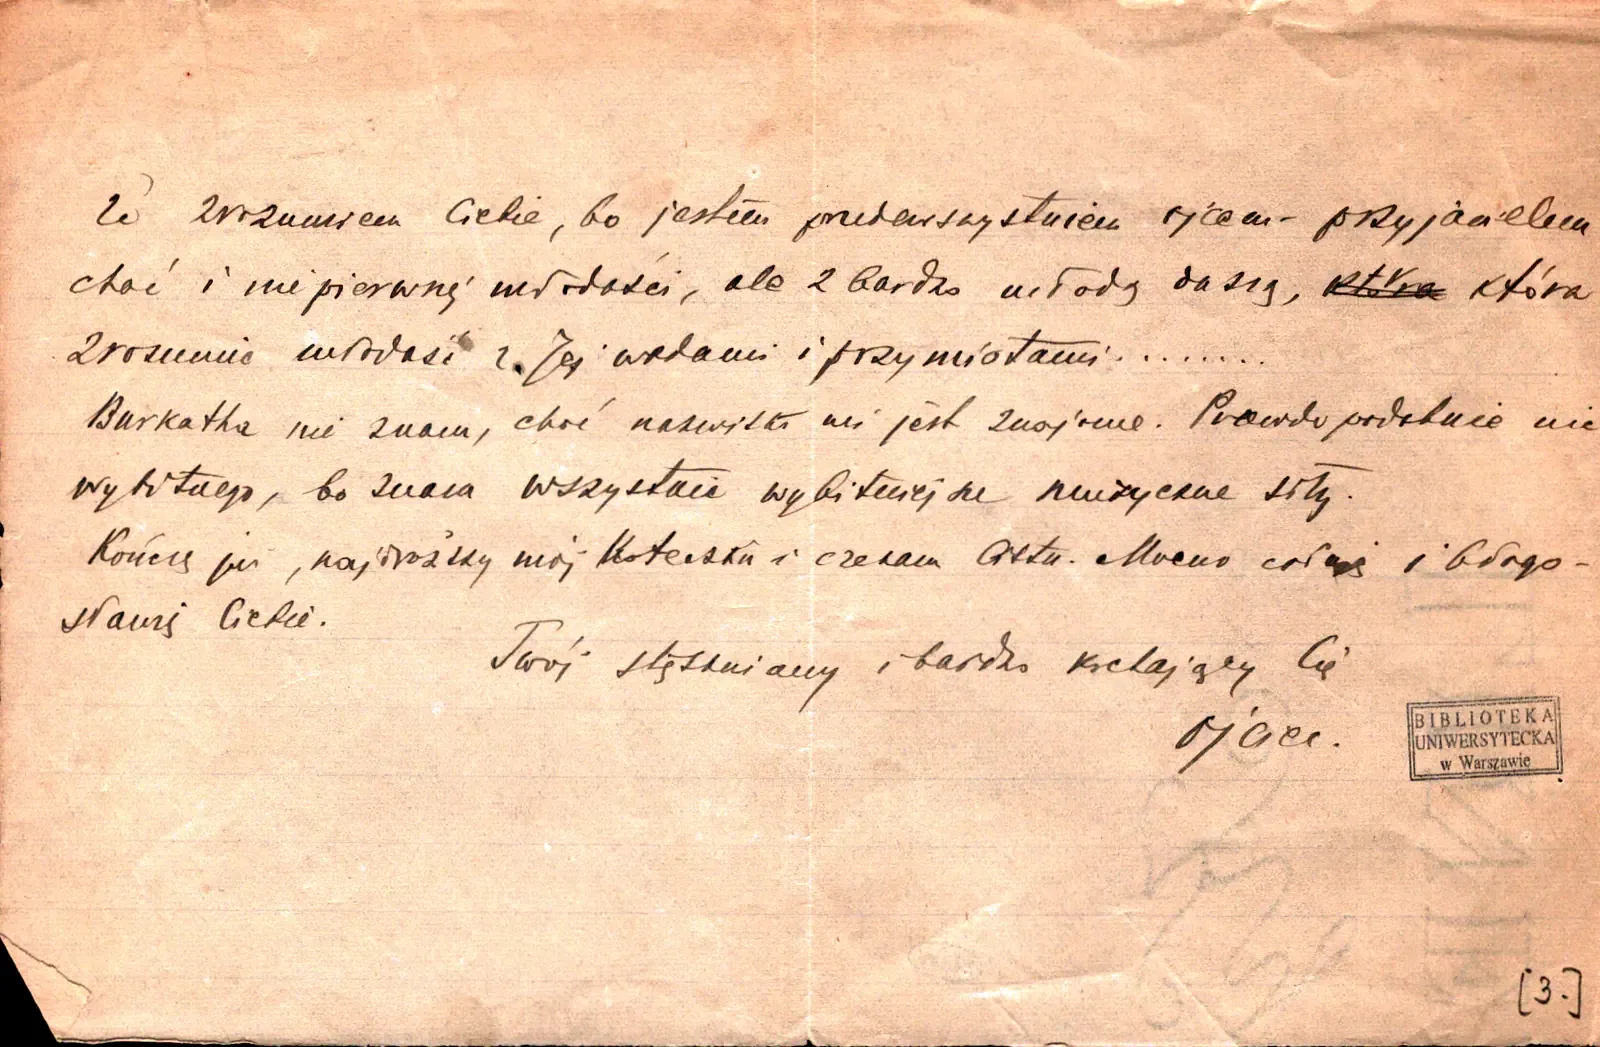 że zrozumiem Ciebie, bo jestem przedewszystkiem ojcem - przyjacielem
choć i nie pierwszej młodości, ale z bardzo młodą duszą, która która
zrozumie młodość z Jej wadami i przymiotami. . . . . . . .
Burkatha nie znam, choć nazwisko mi jest znajome. Prawdopodobnie nic
wybitnego, bo znam wszystkie wybitniejsze muzyczne siły.
Kończę już, najdroższy mój Koteczku i czekam listu. Mocno całuję i błogo-
sławię Ciebie.
Twój stęskniony i bardzo kochający Cię
ojciec.
BIBLIOTEKA
UNIWERSYTECKA
w Warszawie
[3.]